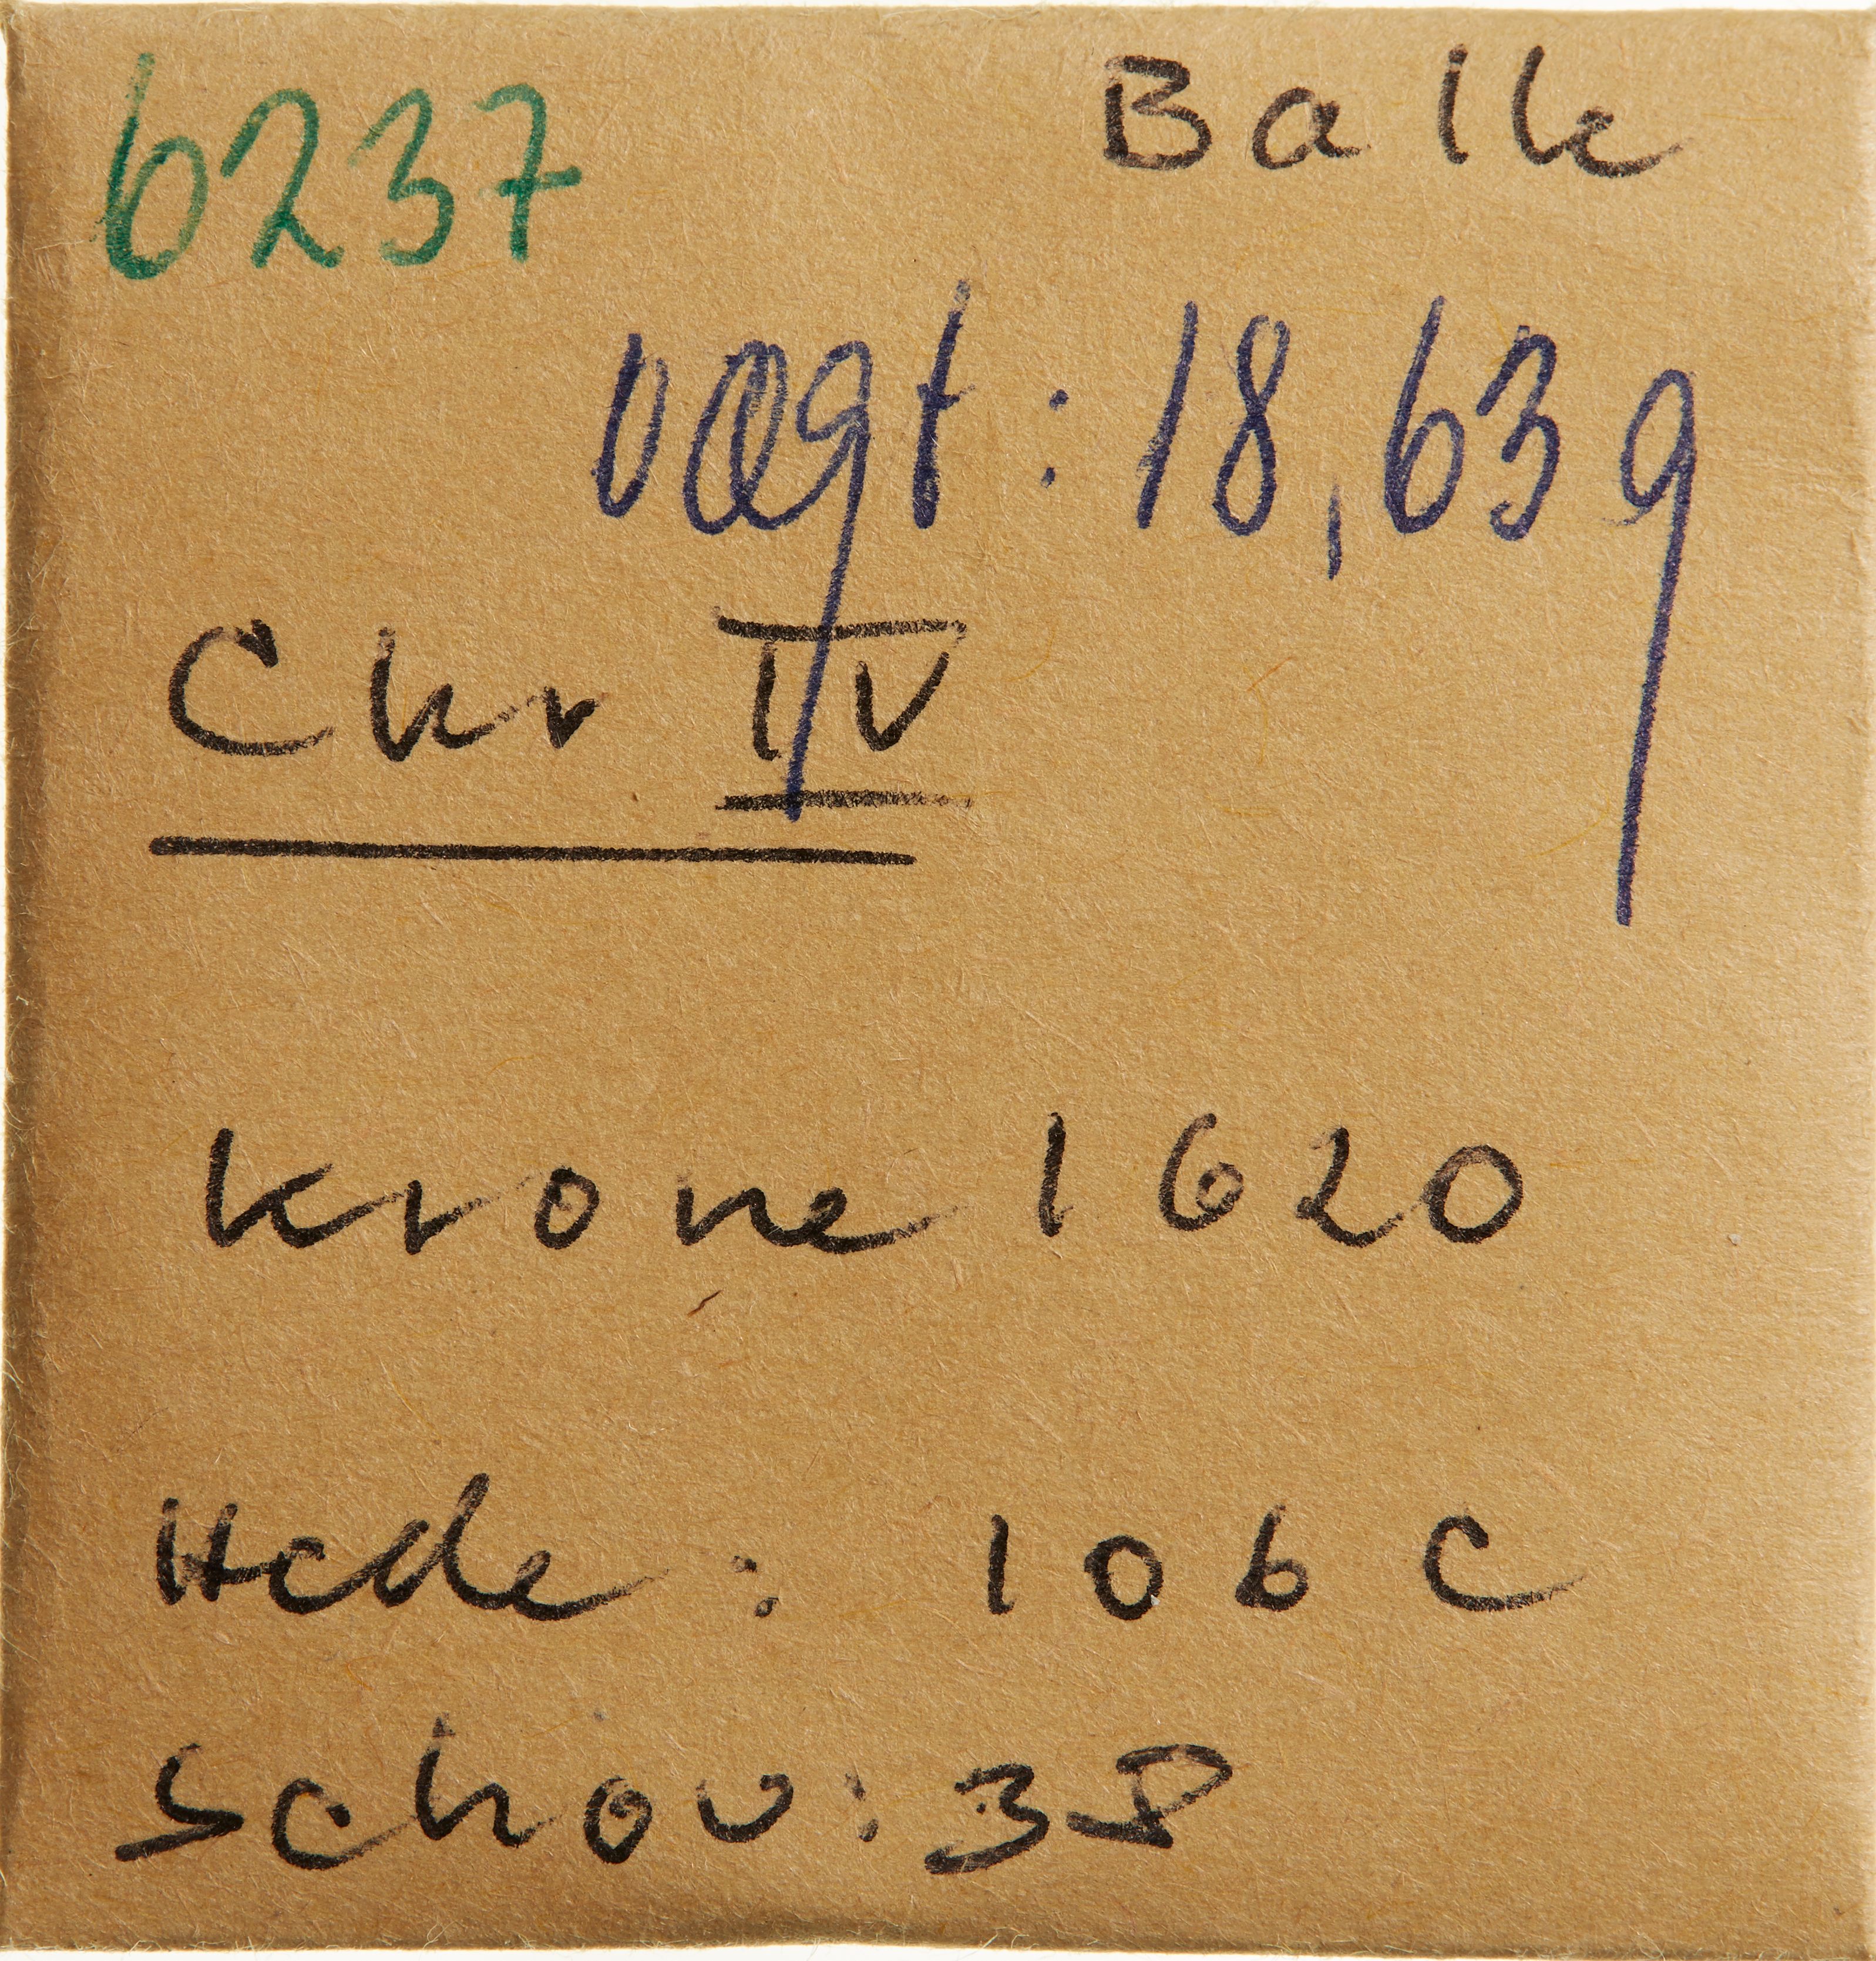 6237 Balle
vægt: 18,63 g
Chr IV
Krone 1620
Hede: 106 C
Schou: 38